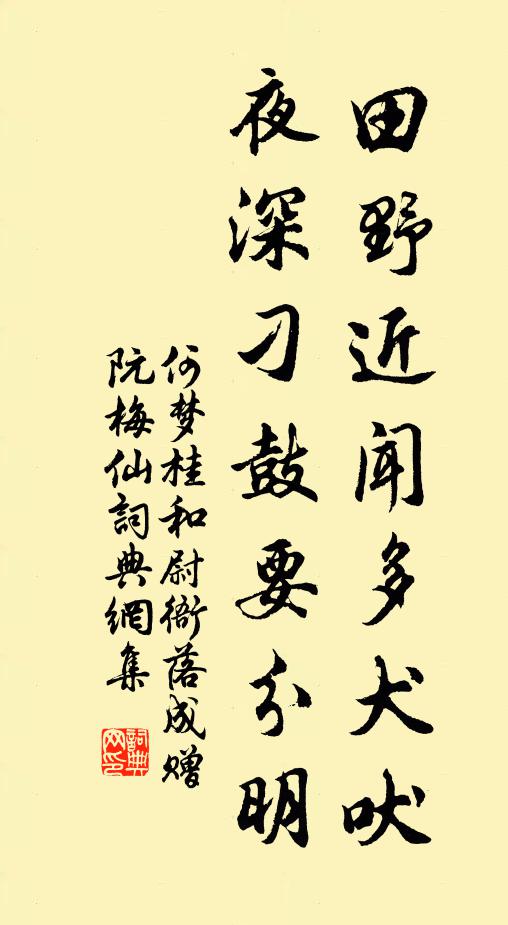 田野近闻多犬吠
夜深刁鼓要分明
何梦桂和尉衙落成赠
阮梅仙詞典網集
詞典
网印